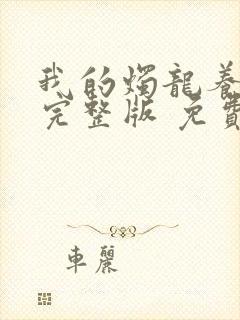 我的燭龍養
完整版 免費
車麗